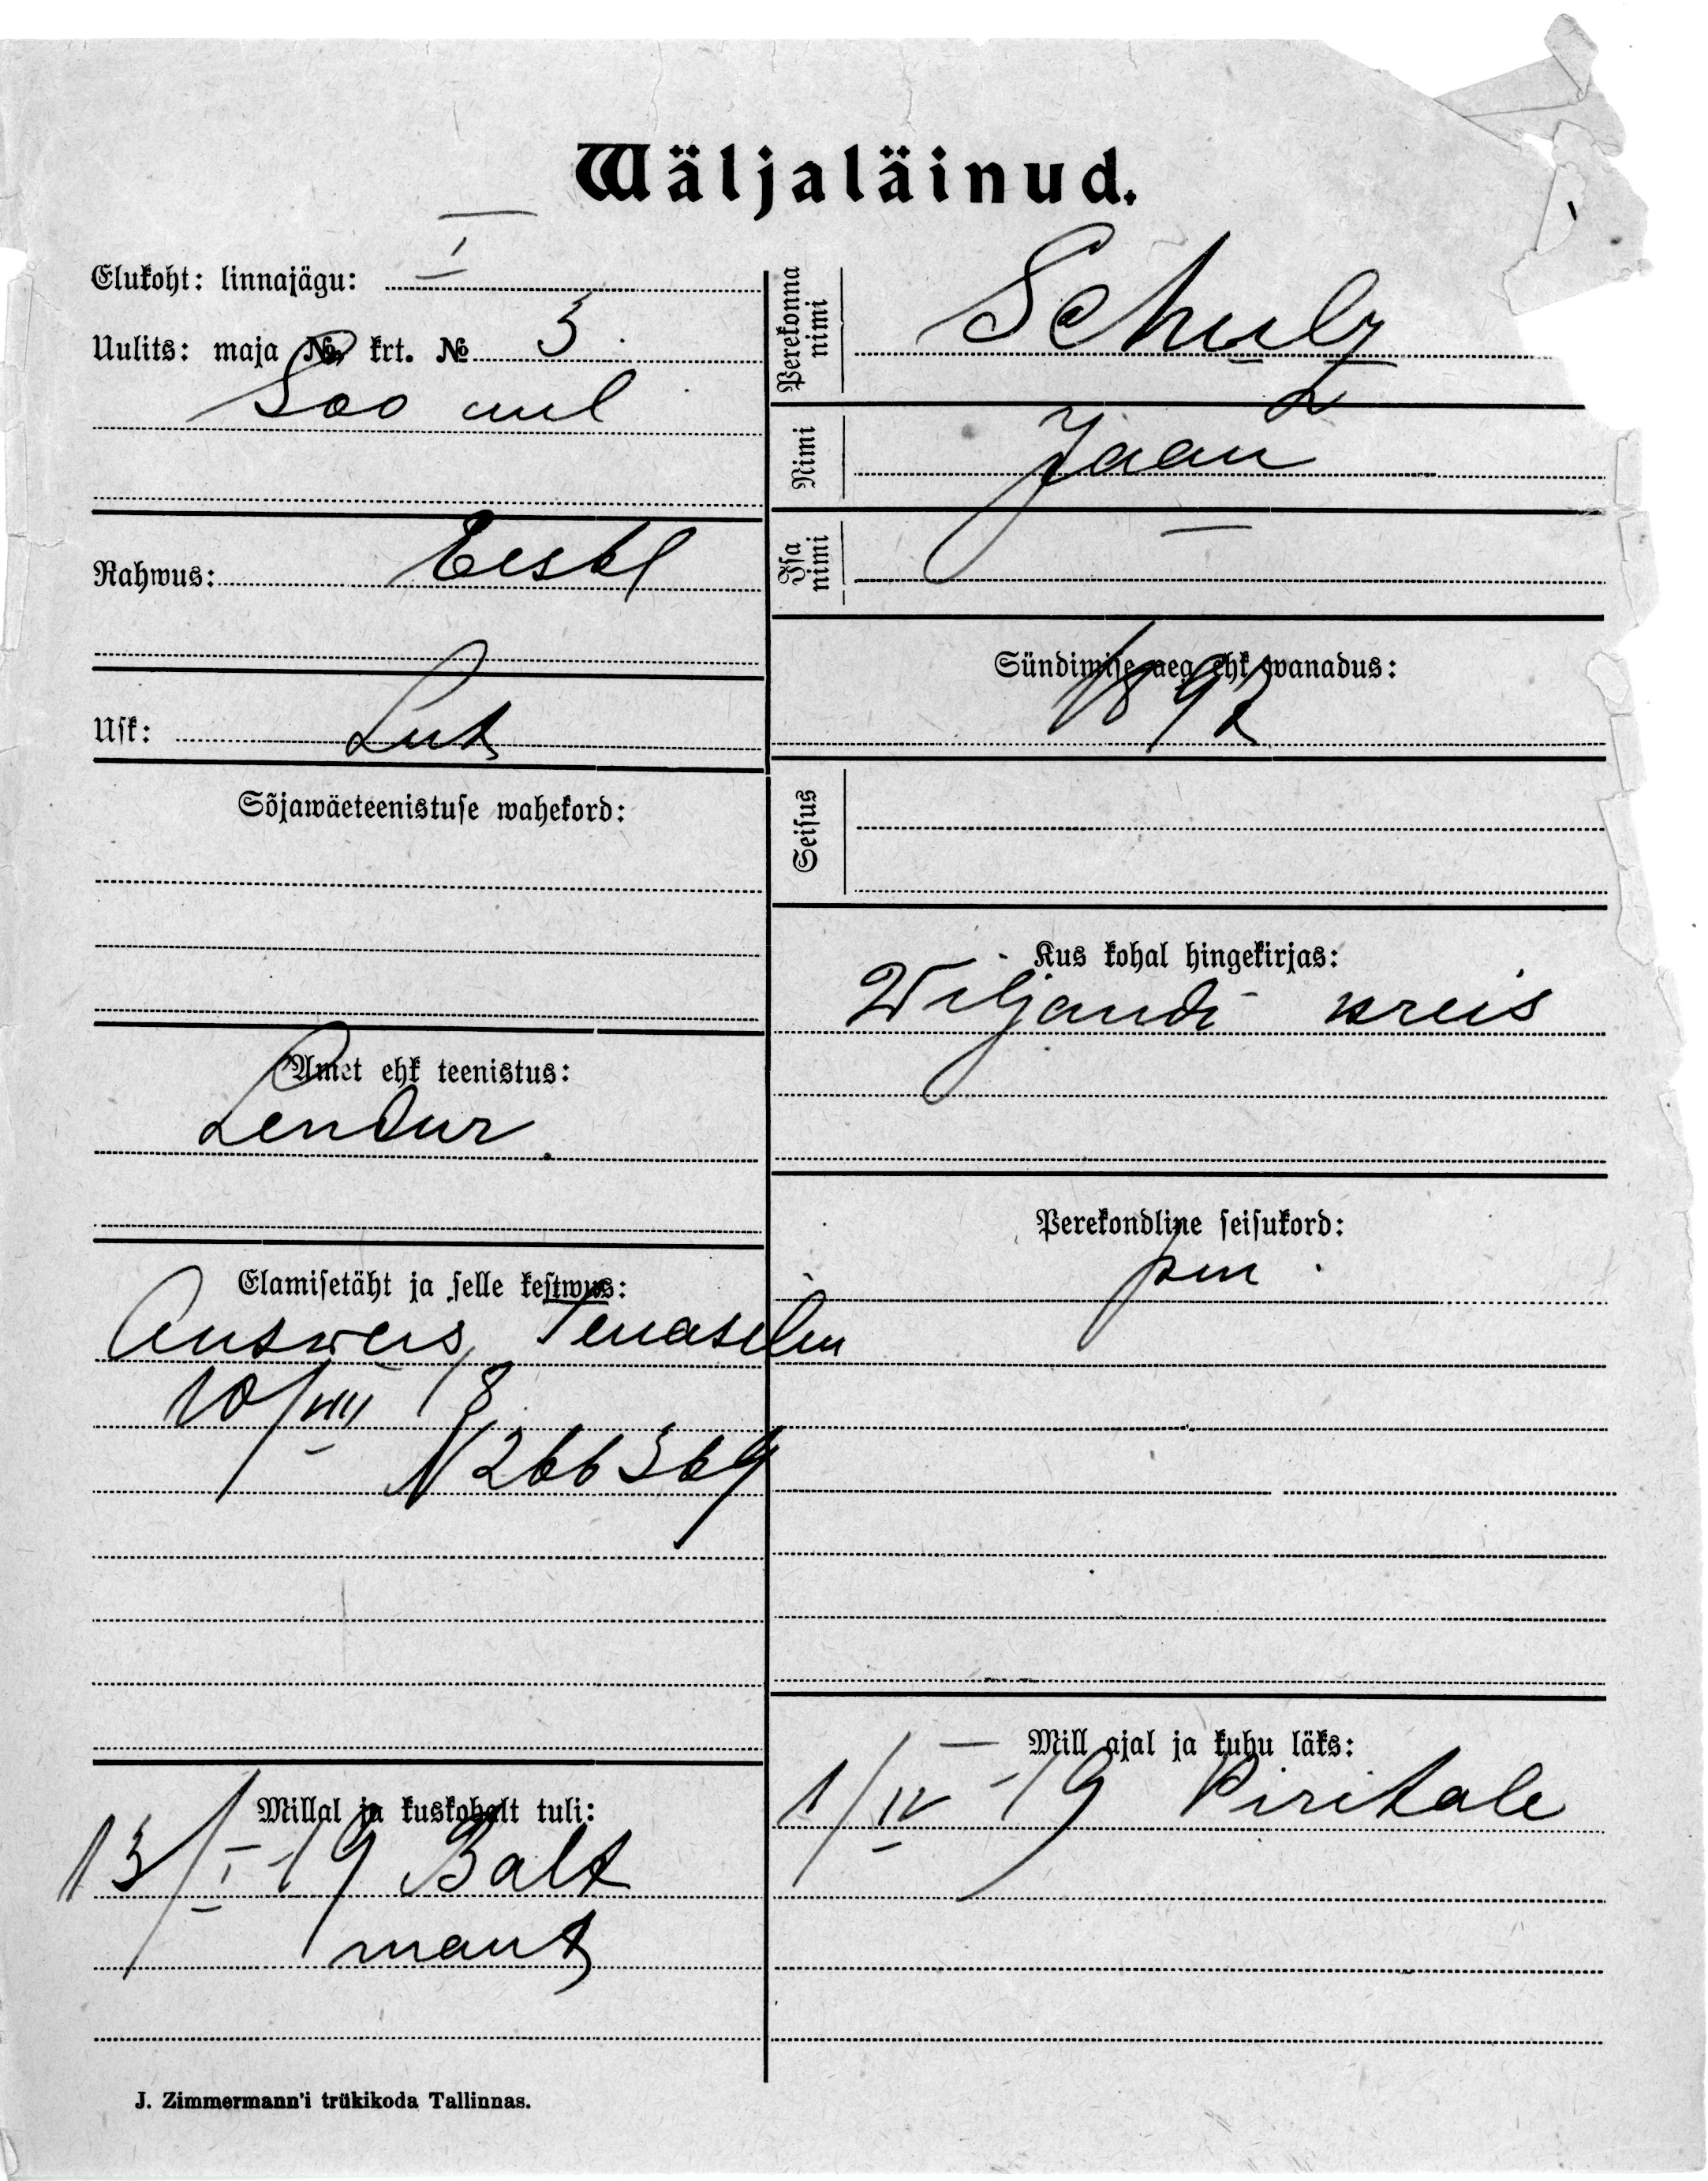 Wäljaläinud.
Elukoht: linnajägu: I
Uulits: maja № krt. № 3
Soo uul
Rahwus: Eesti
Usk: Lut
Sõjawäeteenistuse wahekord:
Amet ehk teenistus:
Lendur.
Elamisetäht ja selle kestwus:
Ausweis
10/VIII 18
N 266369
Millal ja kuskohalt tuli:
13/I-19 Balt
J. Zimmermann'i trükikoda Tallinnas.
Perekonna nimi Schulz
Nimi Jaan
Isa nimi —
Sündimise aeg ehk wanadus:
1892
Seisus
Kus kohal hingekirjas:
Wiljandi kreis
Perekondline seisukord:
Mill ajal ja kuhu läks:
1/IV-19 Piritale